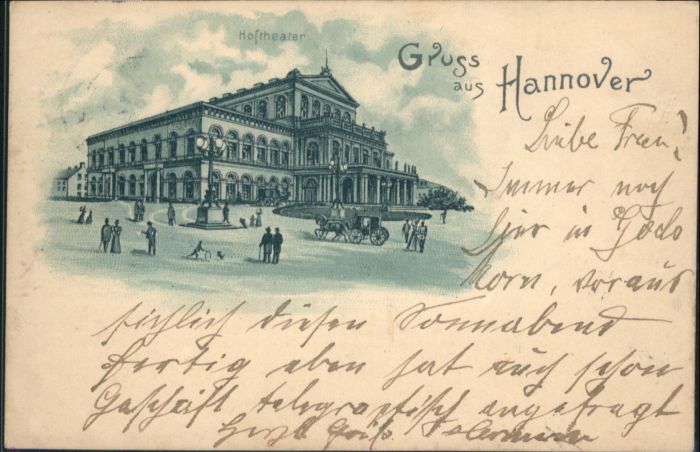 Hoftheater
Gruss
aus Hannover
Liebe Frau!
Immer noch
hier in
voraus
sichtlich diesen Sonnabend
fertig eben hat auch schon
Geschäft telegraphisch angefragt
Herzl. Gruß